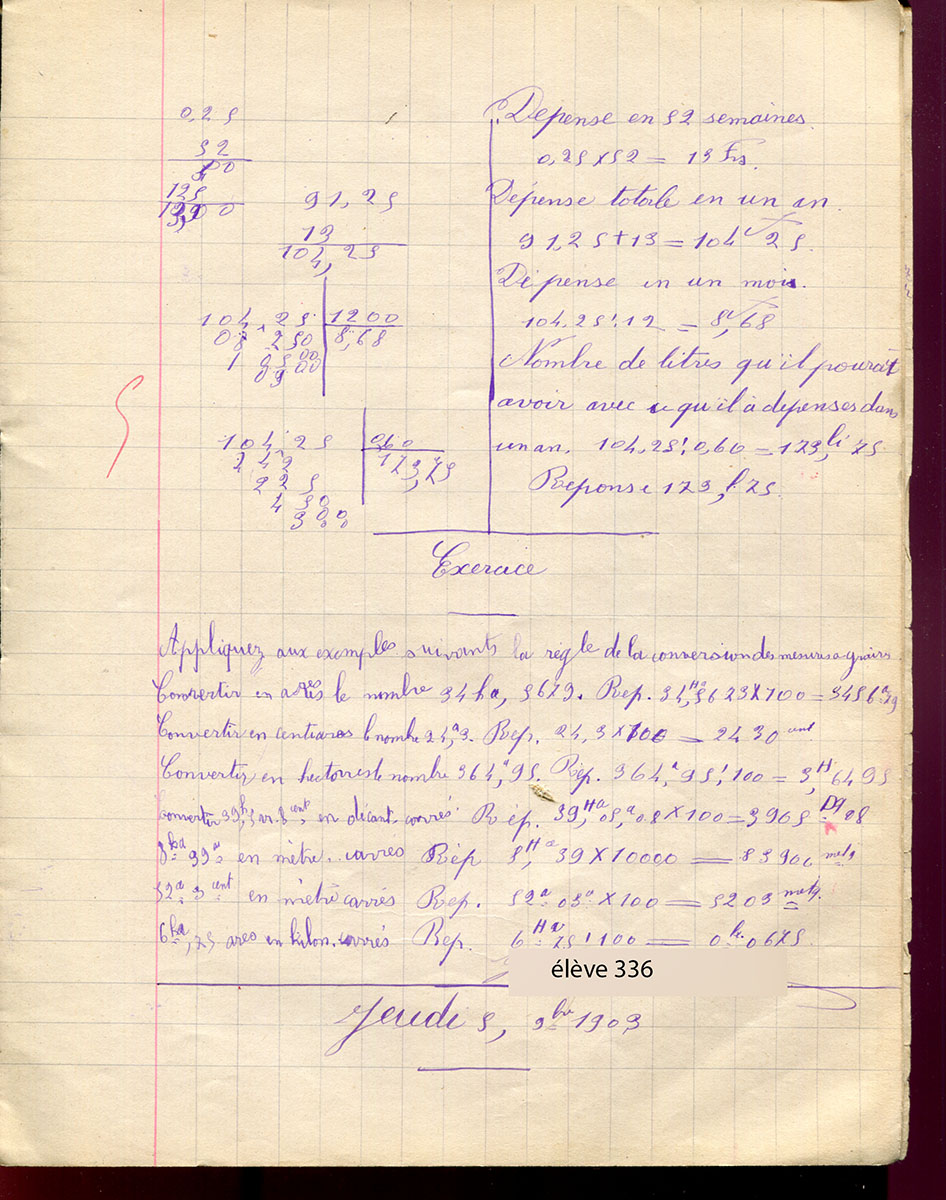 0,25
52
50
125
13,00
91,25
13
104,25
104,25 1200
08 250 8,68
1 0500
0900
104,25 0,60
442 173,75
225
450
300
Dépense en 52 semaines.
0,25 x 52 = 13 Frs.
Dépense totale en un an.
91,25 + 13 = 104f 25.
Dépense en un mois.
104,25 : 12 = 8f,68
Nombre de litres qu'il pourait
avoir avec ce qu'il à depenses dans
un an. 104,25 : 0,60 = 173,li 75.
Réponse 173,l 75.
Exercice
Appliquez aux exemples suivants la règle de la conversion des mesures agraires
Convertir en ares le nombre 34ha, 5679. Rep. 34,Ha 5623 x 100 = 3456a 79
Convertir en centiares le nombre 24,a3. Rep. 24,3 x 100 = 2430 cent
Convertir en hectares le nombre 364,a 95. Rép. 364,a 95 : 100 = 3,H 6495
Convertir 39h, 5 ar. 8 cent en décam. carrés. Rép. 39,Ha 05,a 08 x 100 = 3905 Dq 08
8ha 39a en mètre. carrés Rép 8,Ha 39 x 10000 = 83900 metq
52a 3 cent en mètre carrés Rep. 52a 03a x 100 = 5203 metq.
6ha, 75 ares en kilom. carrés Rep. 6Ha 75 : 100 = 0k 0675.
élève 336
Jeudi 5, 9bre 1903